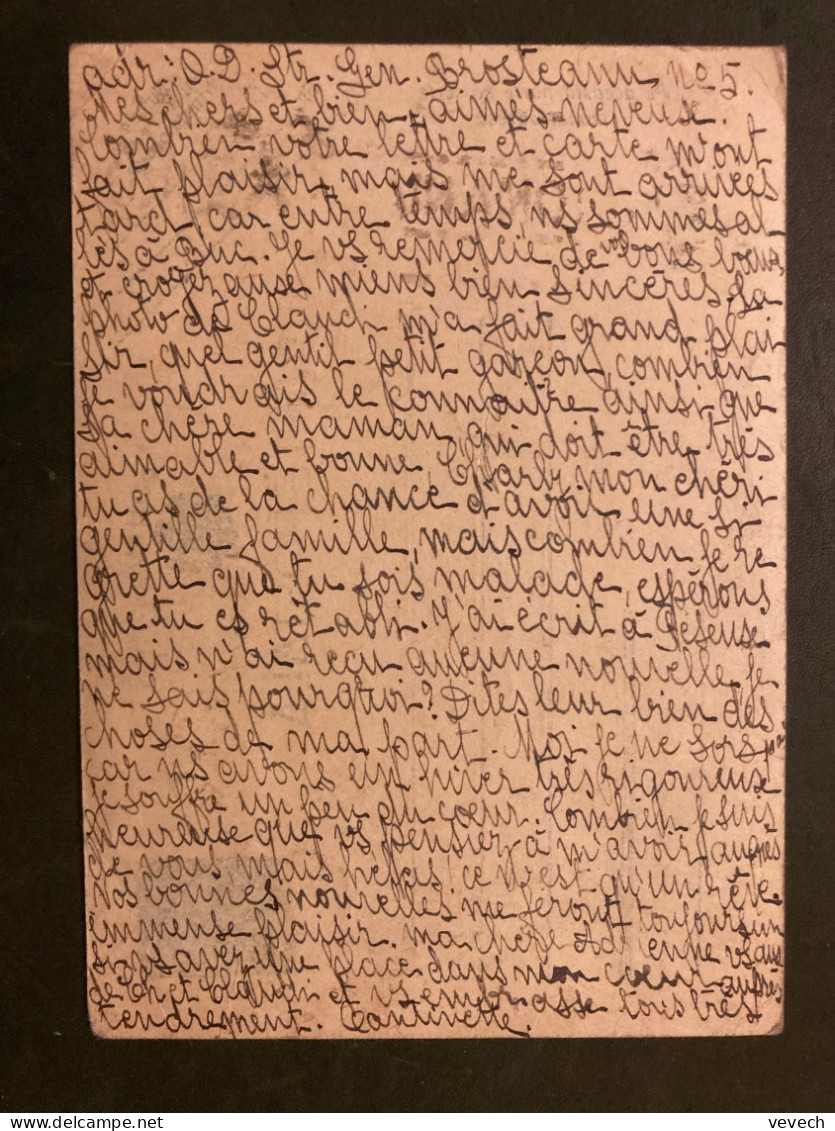 adr: O.D. Str. Gen. Brosteanu, no 5.
Mes chers et bien-aimés neveux.
Combien votre lettre et carte m'ont
fait plaisir, mais me sont arrivées
tard, car entre temps, ns sommes al-
lés à Buc. Je vs remercie de vos bons vœux,
et croyez aussi miens bien sincères. La
photo de Claudi m'a fait grand plai
sir, quel gentil petit garçon, combien
je voudrais le connaître ainsi que
sa chère maman qui doit être très
aimable et bonne, mon chéri
tu as de la chance d'avoir une si
gentille famille, mais combien je re
grette que tu sois malade, espérons
que tu es rétabli. J'ai écrit à
mais n'ai reçu aucune nouvelle, je
ne sais pourquoi? Dites leur bien des
choses de ma part. Moi je ne sors pas
car ns avons un hiver très rigoureuse
je souffre un peu du cœur. Combien je suis
heureuse que vs pensiez à m'avoir auprès
de vous mais hélas! ce n'est qu'un rêve.
Vos bonnes nouvelles me feront toujours un
immense plaisir. Ma chère Adrienne vs aus
si vs avez une place dans mon cœur auprès
de Ch et Claudi et vs embrasse tous très
tendrement. Continette.
vevech